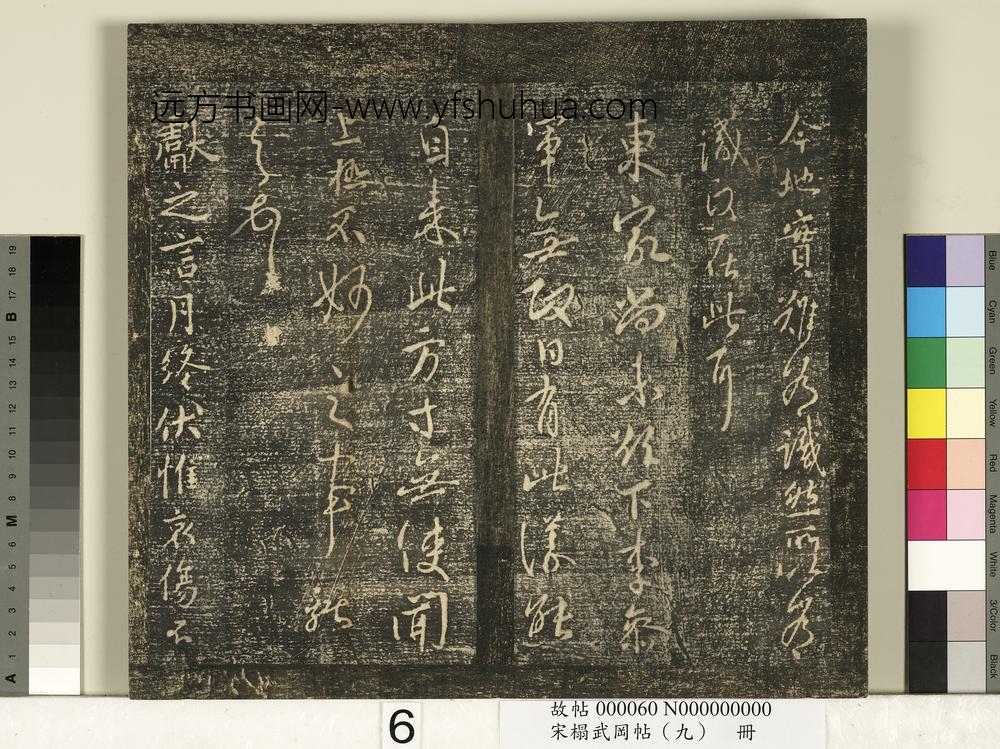 远方书画网-www.yfshuhua.com
今地寶難為識然所以為
識正在此耳
東家尚未欲下
軍無取日有此議能
自來此方寸無使聞
上極不妙之事
獻之言月終伏惟哀傷不
19 18 17 B 16 15 14 13 12 11 10 9 8 M 7 6 5 4 3 2 1 A
Blue
Cyan
Green
Yellow
Red
Magenta
White
3/Color
Black
6
故帖 000060 N000000000
宋榻武岡帖（九） 冊